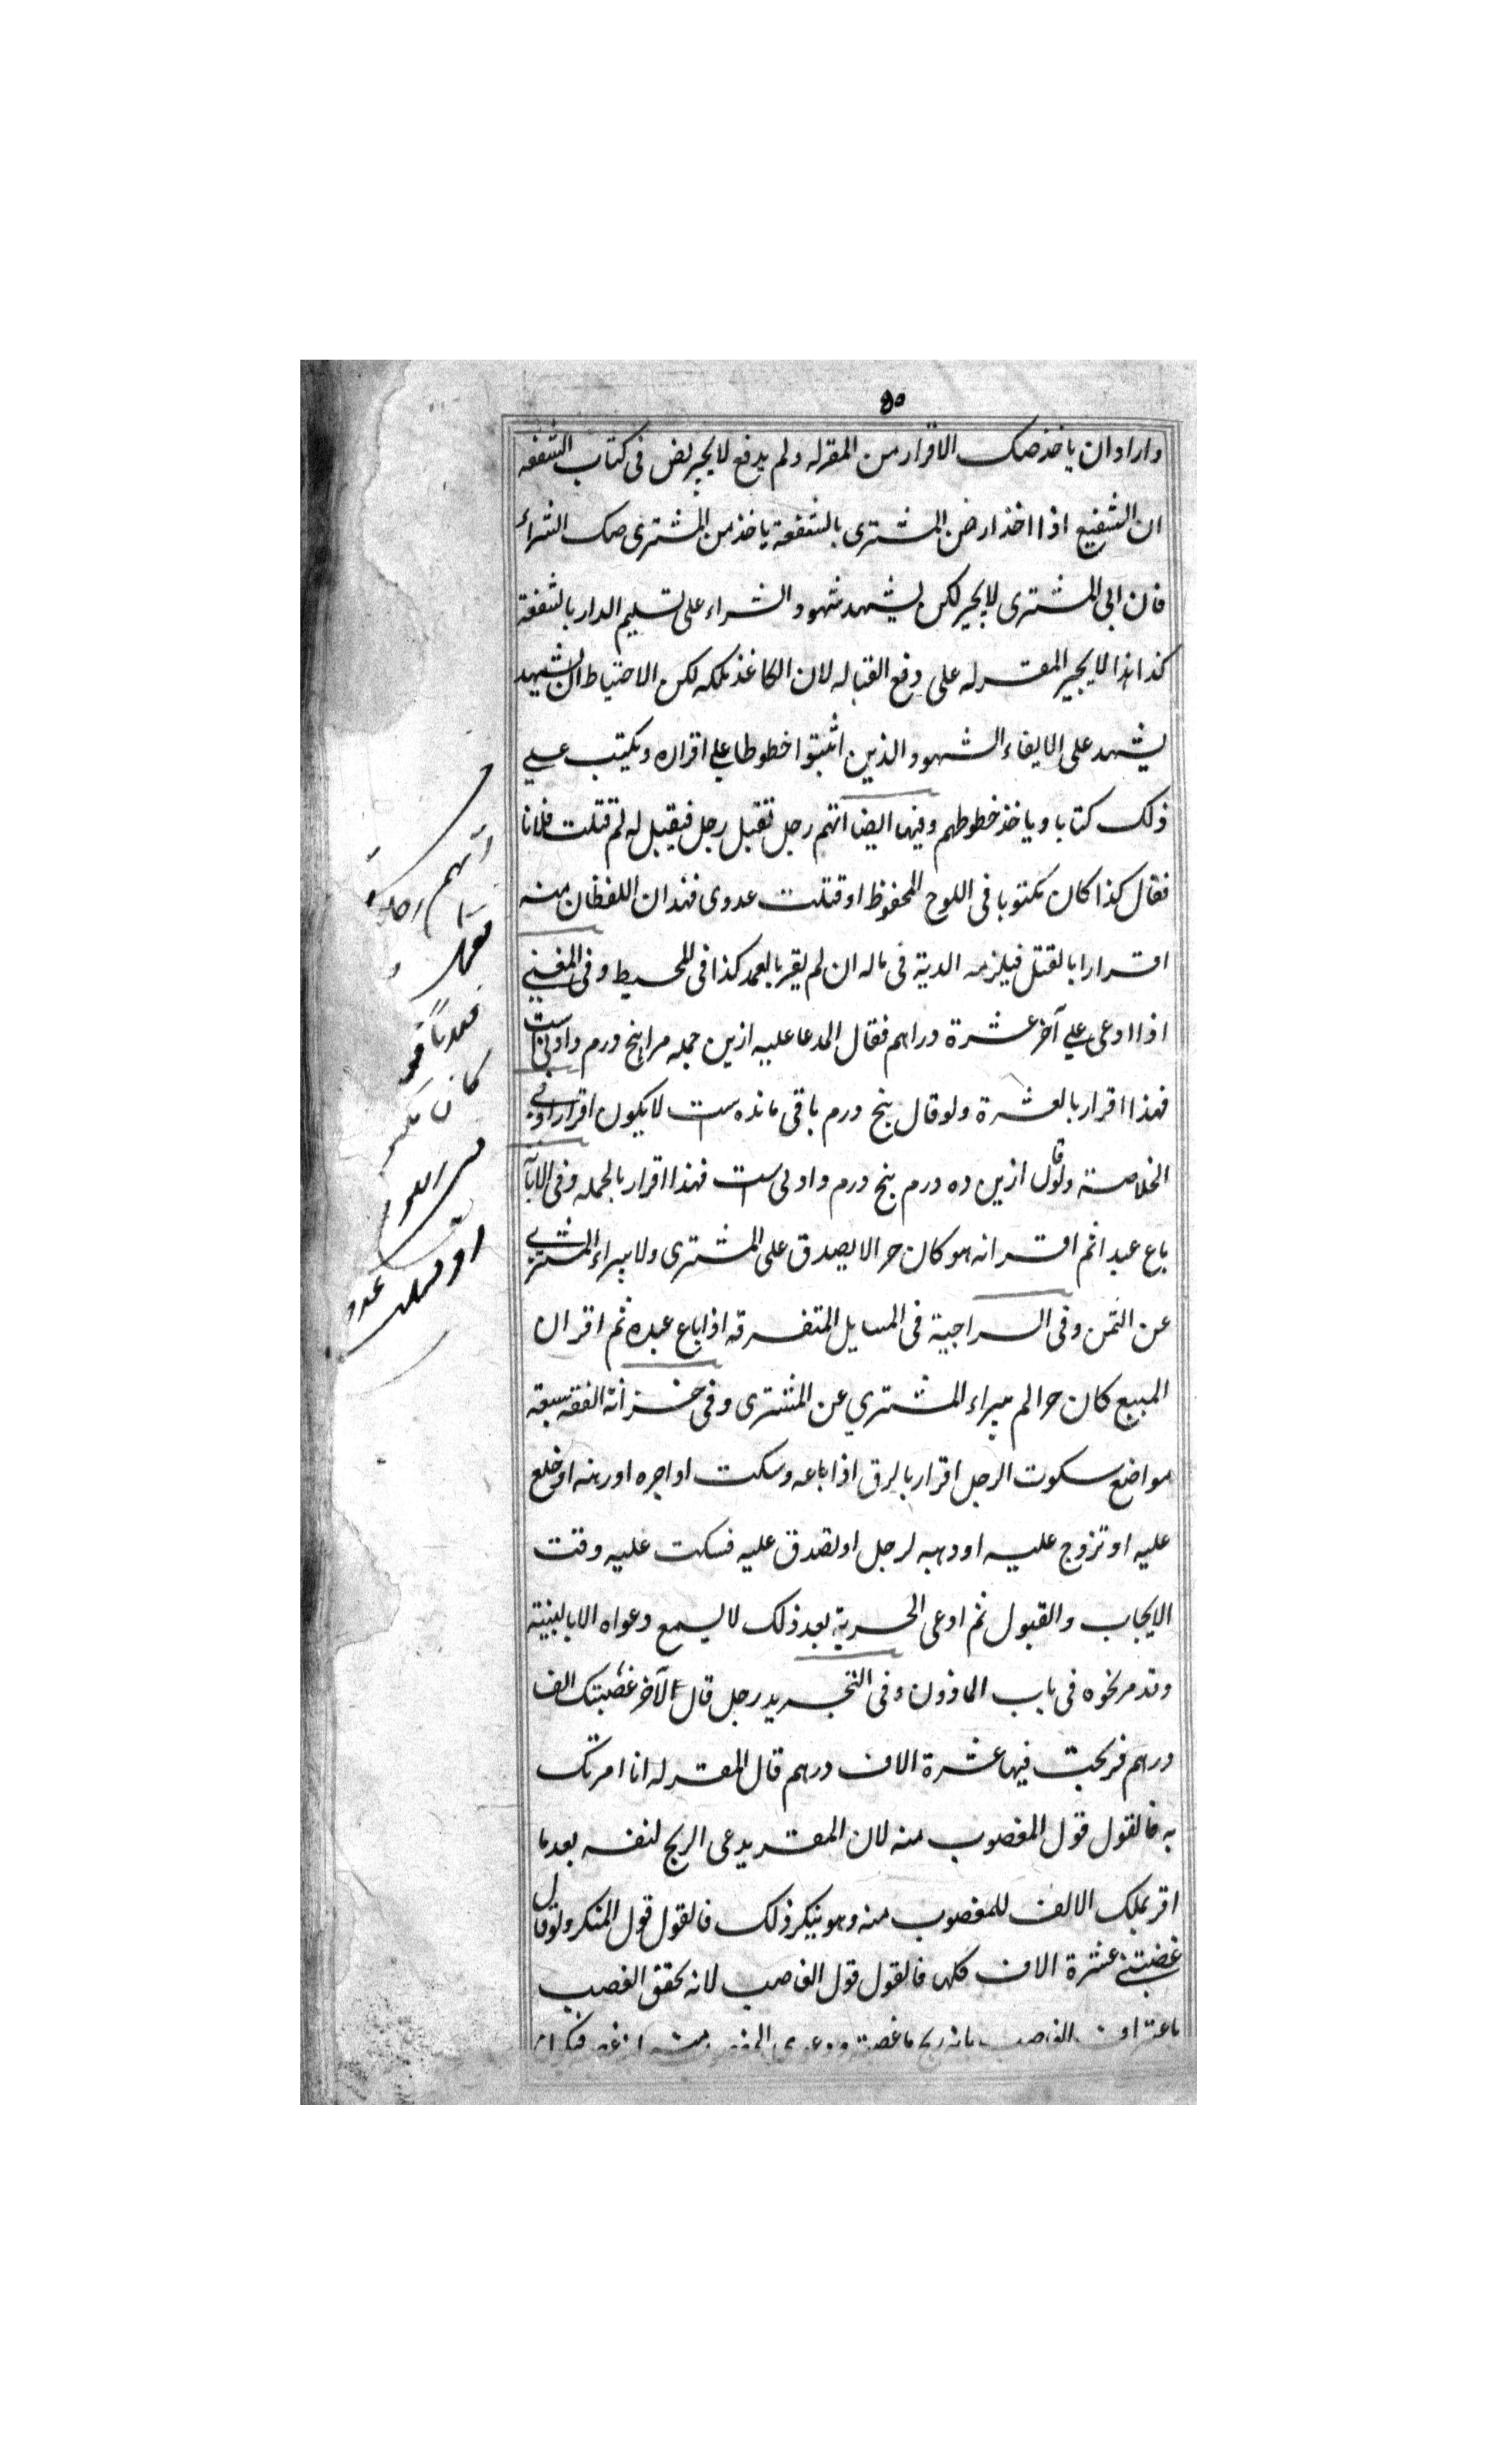 ٥٠
واراد ان ياخذ صك الاقرار من المقرله ولم يدفع لايجبر نص فى كتاب الشفعه
ان الشفيع اذا اخذ ارض المشترى بالشفعة ياخذ من المشترى صك الشراء
فان ابى المشترى لايجبر لكن يشهد شهود الشراء على تسليم الدار بالشفعة
كذا هذا لايجبر المقرله على دفع القباله لان الكاغذ ملكه لكن الاحتياط ان يشهد
يشهد على الايفاء الشهود الذين اثبتوا خطوطا على اقراره ويكتب على
ذلك كتابا وياخذ خطوطهم وفيها ايضا اتهم رجل بقتل رجل فيقبل له لم قتلت فلانا
فقال كذا كان مكتوبا فى اللوح المحفوظ او قتلت عدوى فهذان اللفظان منه
اقرارا بالقتل فيلزمه الدية فى ماله ان لم يقر بالعمد كذا فى المحيط وفى المغنى
اذا ادعى على آخر عشرة دراهم فقال المدعا عليه ازين جمله مرا پنج درم دادنى است
فهذا اقرار بالعشرة ولو قال پنج درم باقى مانده است لا يكون اقرارا وفى
الخلاصة ولو قال ازين ده درم پنج درم دادنى است فهذا اقرار بالجمله وفى
باع عبدا ثم اقر انه هو كان حرا لايصدق على المشترى ولا يبراء المشترى
عن الثمن وفى السراجية فى المسايل المتفرقه اذا باع عبده ثم اقر ان
المبيع كان حرا لم يبراء المشتري عن المشترى وفى خزانة الفقه سبعة
مواضع سكوت الرجل اقرار بالرق اذا باعه وسكت او اجره او رهنه او خلع
عليه او تزوج عليه او وهبه لرجل او تصدق عليه فسكت عليه وقت
الايجاب والقبول ثم ادعى الحرية بعد ذلك لايسمع دعواه الا بالبينة
وقد مر نحوه فى باب الماذون وفى التجريد رجل قال لآخر غصبتك الف
درهم فربحت فيها عشرة الاف درهم قال المقرله انا امرتك
به فالقول قول المغصوب منه لان المقر يدعى الربح لنفسه بعدما
اقر بملك الالف للمغصوب منه وهو ينكر ذلك فالقول قول المنكر ولو قال
غصبتنى عشرة الاف كلها فالقول قول الغاصب لانه تحقق الغصب
اتهم رجل
كان